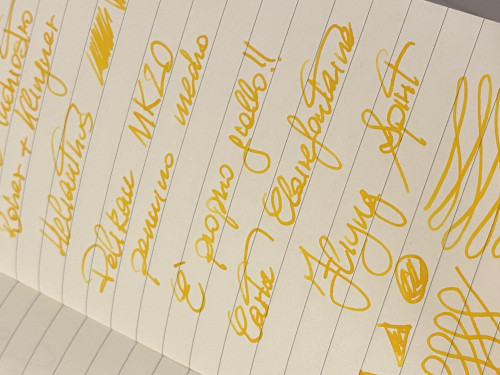 Inchiostro
Rohrer + Klingner
Helianthus
Pelikan MK20
pennino medio
E' proprio giallo!!
Carta Clairefontaine
Flying Spirit